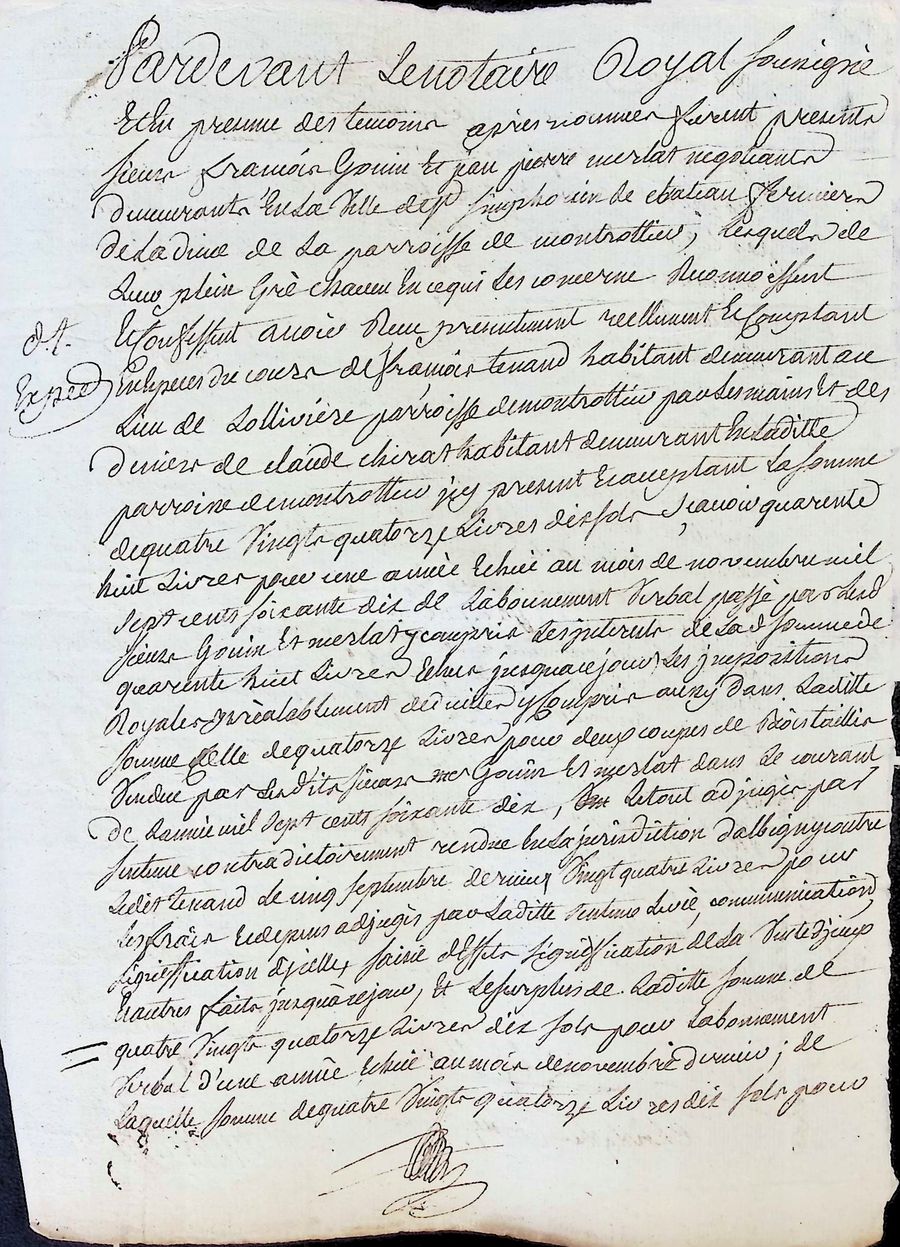 Pardevant Le notaire Royal soussigné
Et En presence des temoins apres nommes furent presents
sieurs françois Gouin Et jean pierre merlat negotiants
demeurants En La Ville de st simphorien de chateau fermiers
de La dime de La parroisse de montrottier, Lesquels de
Leur plein Gré chacun En ce qui Les concerne Reconnoissent
Et Confessent avoir Recu presentement reellement Et Comptant
En Especes du cours de françois tenand habitant demeurant au
Lieu de Lollivière parroisse de montrottier par Les mains Et des
deniers de claude chirat habitant demeurant En Laditte
parroisse de montrottier jcy present Et acceptant La somme
de quatre Vingts quatorze Livres dix sols sçavoir quarente
huit Livres pour une année Echüe au mois de novembre mil
sept cents soixante dix de Labonnement Verbal passé par Lesd
sieurs Gouin Et merlat y compris Les jnterets de Lad sommede
quarente huit Livres Echus jusqua ce jour, Les jmpositions
Royales préalablement deduittes y Compris aussy dans Laditte
somme Celle de quatorze Livres pour deux coupes de Bois taillis
Vendue par Lesdits sieurs Gouin Et merlat dans Le courant
de Lannée mil sept cents soixante dix, Le tout adjugés par
sentence contradictoirement rendue En La jurisdiction dalbigny contre
Ledit tenand Le cinq septembre dernier Vingt quatre Livres pour
Les frais Et depens adjugés par Laditte sentence Levée, communication,
signiffication djcelle, saisie d'Effets signiffication de La Vente djceux
Et autres faits jusquà ce jour, Et Le surplus de Laditte somme de
quatre Vingts quatorze Livres dix sols pour Labonnement
Verbal d'une année Echüe au mois de novembre dernier; de
Laquelle somme de quatre Vingts quatorze Livres dix sols pour
Exped